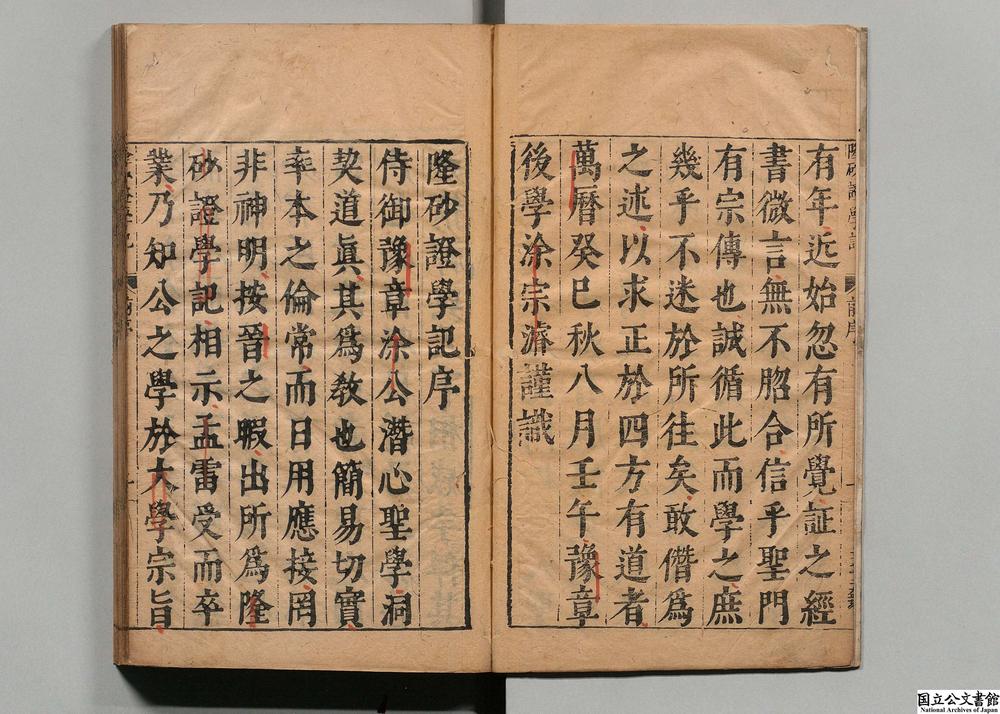 有年近始忽有所覺証之經
書微言無不脗合信乎聖門
有宗傳也誠循此而學之庶
幾乎不迷於所往矣敢僭爲
之述以求正於四方有道者
萬曆癸巳秋八月壬午豫章
後學涂宗濬謹識
隆砂證學記序
侍御豫章涂公潛心聖學洞
契道眞其爲敎也簡易切實
率本之倫常而日用應接罔
非神明按晉之暇出所爲隆
砂證學記相示孟雷受而卒
業乃知公之學於大學宗旨
国立公文書館
National Archives of Japan